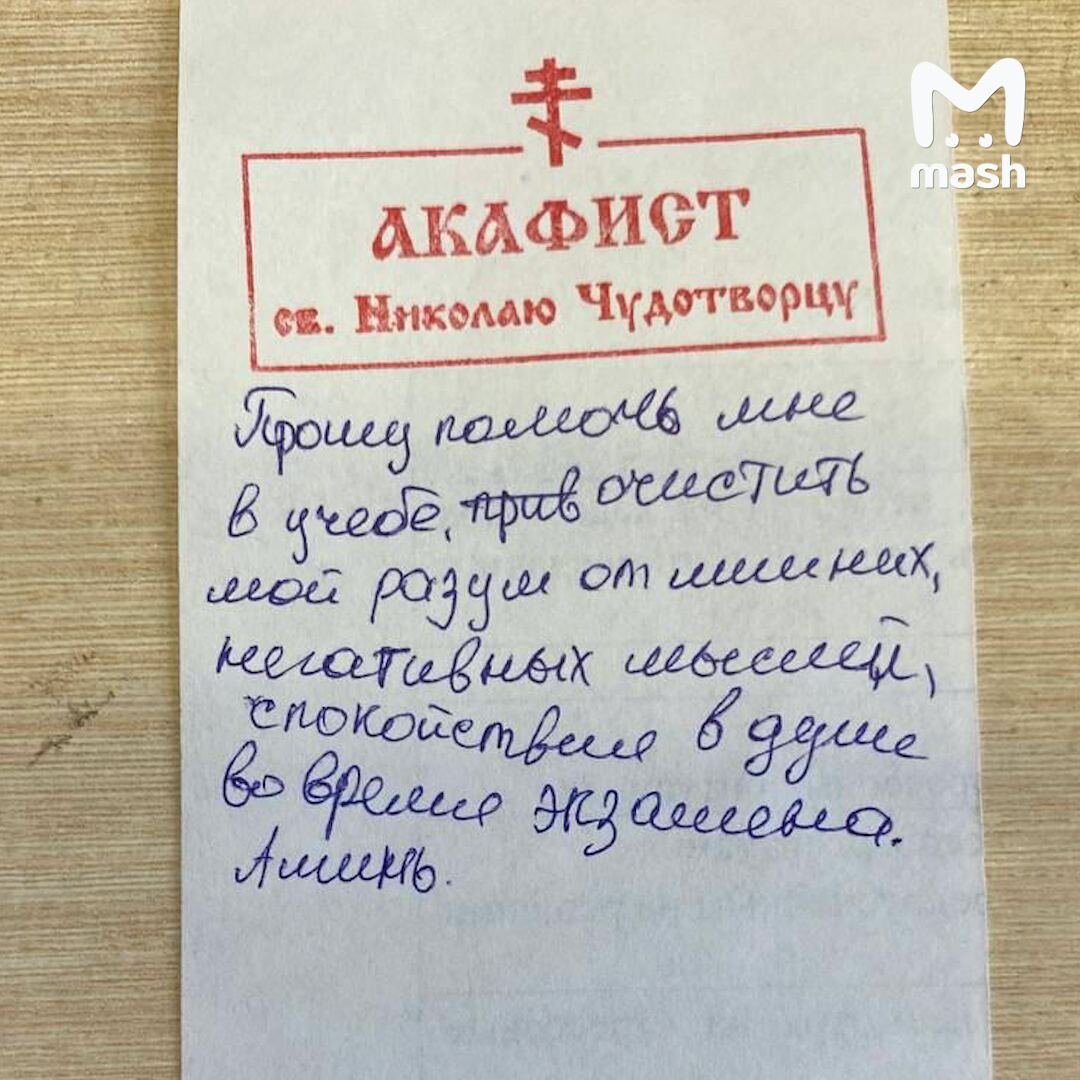 mash
АКАФИСТ
св. Николаю Чудотворцу
Прошу помочь мне
в учебе, прив очистить
мой разум от лишних,
негативных мыслей,
спокойствие в душе
во время экзамена.
Аминь.